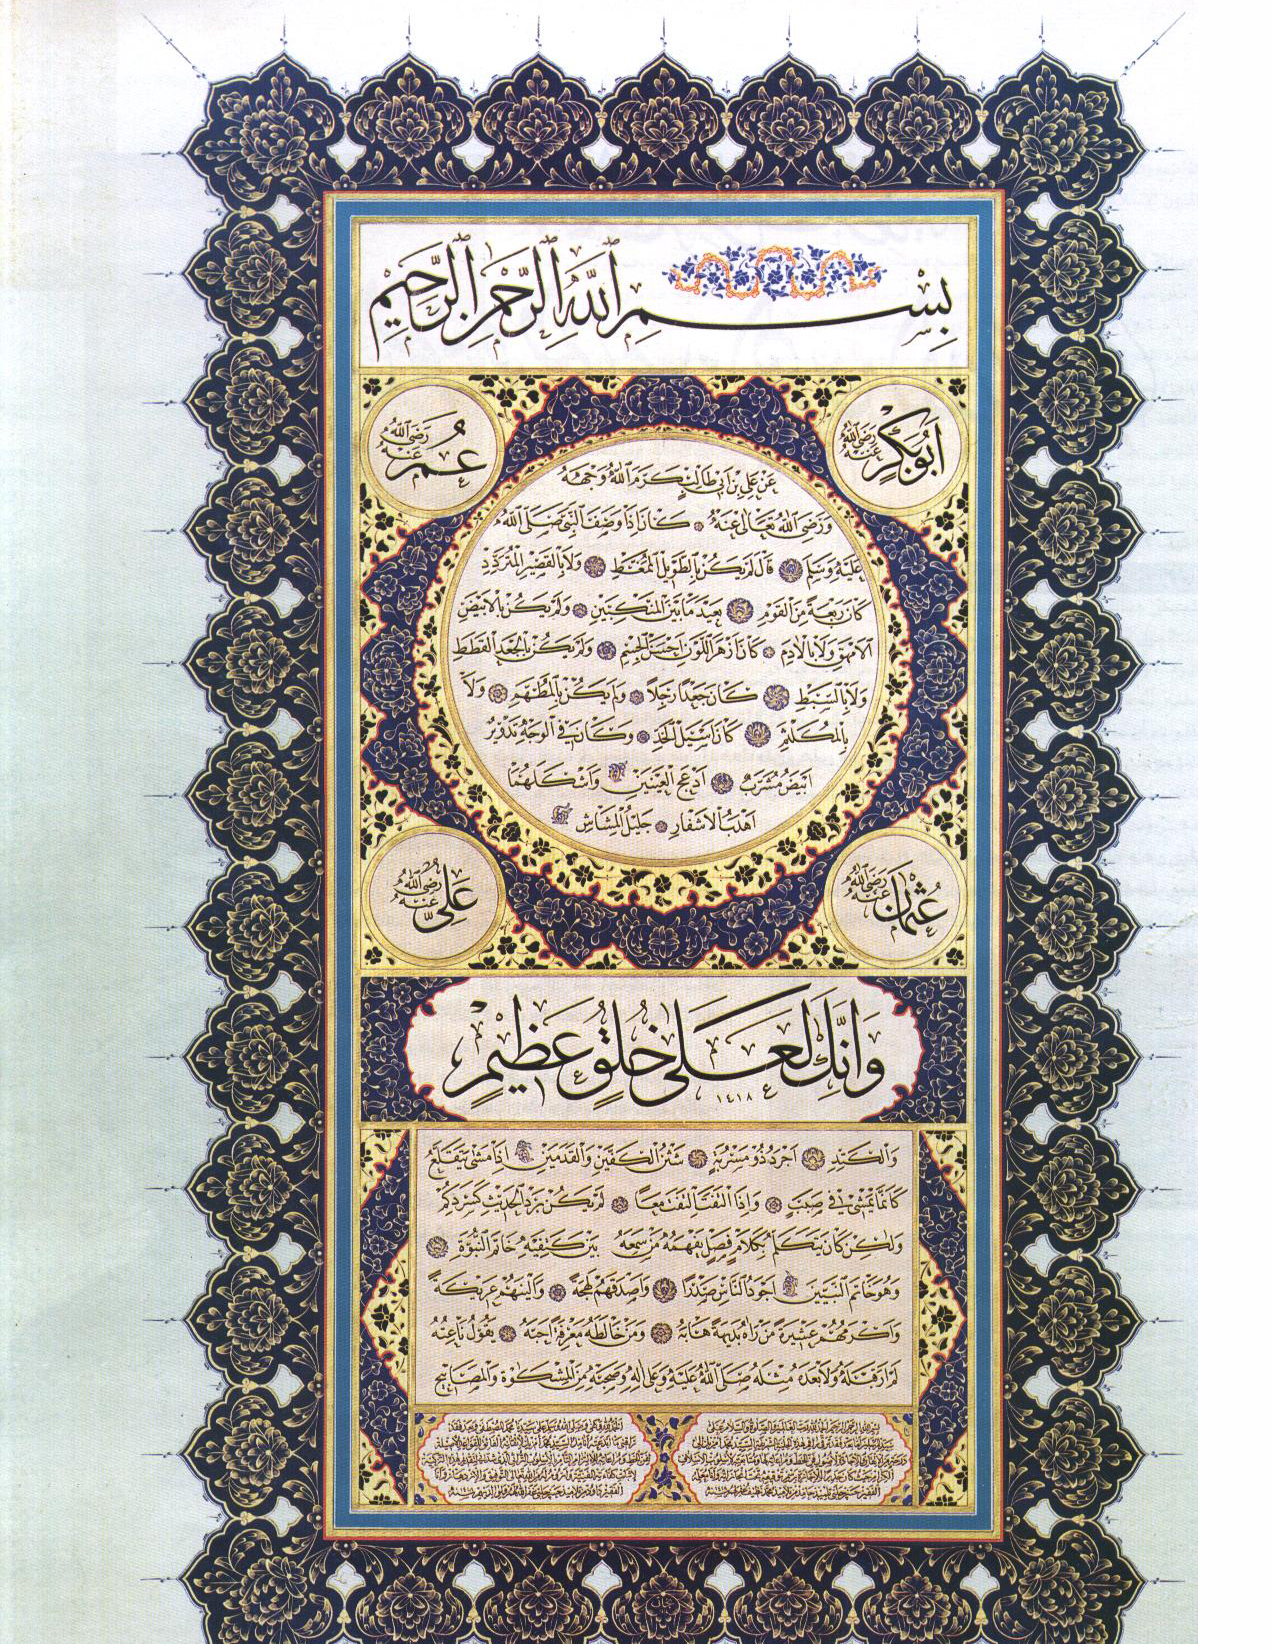 بِسْمِ اللّٰهِ الرَّحْمٰنِ الرَّحِيمِ
اَبُوبَكْرٍ رَضِيَ اللّٰهُ عَنْهُ
عُمَرُ رَضِيَ اللّٰهُ عَنْهُ
عَنْ عَلِيِّ بْنِ اَبِي طَالِبٍ كَرَّمَ اللّٰهُ وَجْهَهُ
وَرَضِيَ اللّٰهُ تَعَالٰى عَنْهُ كَانَ اِذَا وَصَفَ النَّبِيَّ صَلَّى اللّٰهُ
عَلَيْهِ وَسَلَّمَ قَالَ لَمْ يَكُنْ بِالطَّوِيلِ الْمُمَّغِطِ وَلَا بِالْقَصِيرِ الْمُتَرَدِّدِ
كَانَ رَبْعَةً مِنَ الْقَوْمِ بَعِيدَ مَا بَيْنَ الْمَنْكِبَيْنِ وَلَمْ يَكُنْ بِالْاَبْيَضِ
الْاَمْهَقِ وَلَا بِالْاٰدَمِ كَانَ اَزْهَرَ اللَّوْنِ اَحْسَنَ الْجِسْمِ وَلَمْ يَكُنْ بِالْجَعْدِ الْقَطَطِ
وَلَا بِالسَّبِطِ كَانَ جَعْدًا رَجِلًا وَلَمْ يَكُنْ بِالْمُطَهَّمِ وَلَا
بِالْمُكَلْثَمِ كَانَ اَسِيلَ الْخَدِّ وَكَانَ فِي الْوَجْهِ تَدْوِيرٌ
اَبْيَضُ مُشْرَبٌ اَدْعَجُ الْعَيْنَيْنِ وَاَشْكَلَهُمَا
اَهْدَبُ الْاَشْفَارِ جَلِيلُ الْمُشَاشِ
عُثْمَانُ رَضِيَ اللّٰهُ عَنْهُ
عَلِيٌّ رَضِيَ اللّٰهُ عَنْهُ
وَاِنَّكَ لَعَلٰى خُلُقٍ عَظِيمٍ
١٤١٨
وَالْكَتَدِ اَجْرَدُ ذُو مَسْرُبَةٍ شَثْنُ الْكَفَّيْنِ وَالْقَدَمَيْنِ اِذَا مَشٰى يَتَقَلَّعُ
كَاَنَّمَا يَمْشِي فِي صَبَبٍ وَاِذَا الْتَفَتَ الْتَفَتَ مَعًا لَمْ يَكُنْ يَرُدُّ الْحَدِيثَ كَسَرْدِكُمْ
وَلٰكِنْ كَانَ يَتَكَلَّمُ بِكَلَامٍ فَصْلٍ يَفْهَمُهُ مَنْ سَمِعَهُ بَيْنَ كَتِفَيْهِ خَاتَمُ النُّبُوَّةِ
وَهُوَ خَاتَمُ النَّبِيِّينَ اَجْوَدُ النَّاسِ صَدْرًا وَاَصْدَقُهُمْ لَهْجَةً وَاَلْيَنُهُمْ عَرِيكَةً
وَاَكْرَمُهُمْ عَشِيرَةً مَنْ رَاٰهُ بَدِيهَةً هَابَهُ وَمَنْ خَالَطَهُ مَعْرِفَةً اَحَبَّهُ يَقُولُ نَاعِتُهُ
لَمْ اَرَ قَبْلَهُ وَلَا بَعْدَهُ مِثْلَهُ صَلَّى اللّٰهُ عَلَيْهِ وَعَلٰى اٰلِهِ وَصَحْبِهِ مِنَ الْمِشْكٰوةِ وَالْمَصَابِيحِ